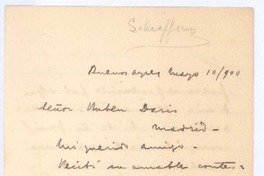 Schiaffino
Buenos Ayres Mayo 10/900
Señor Rubén Dario
Madrid —
Mi querido amigo —
Recibí su amable contes=